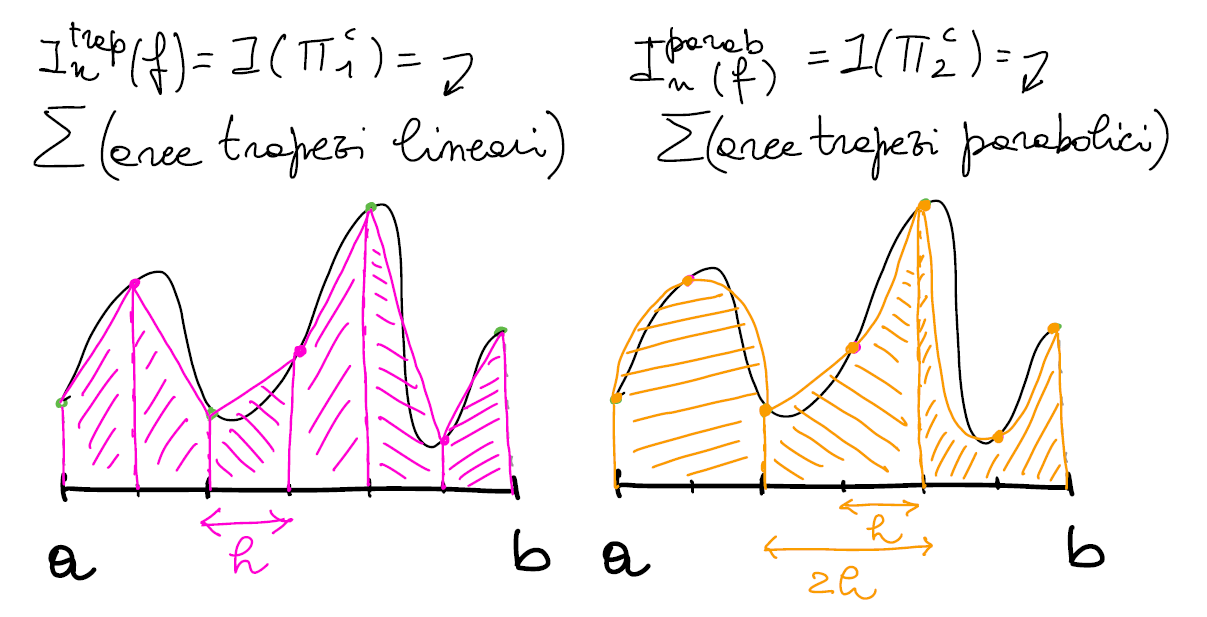 I_n^{trap}(f) = I(Π_1^c) = ⤵
Σ(aree trapezi lineari)
a
h
b
I_n^{parab}(f) = I(Π_2^c) = ⤵
Σ(aree trapezi parabolici)
h
a
2h
b